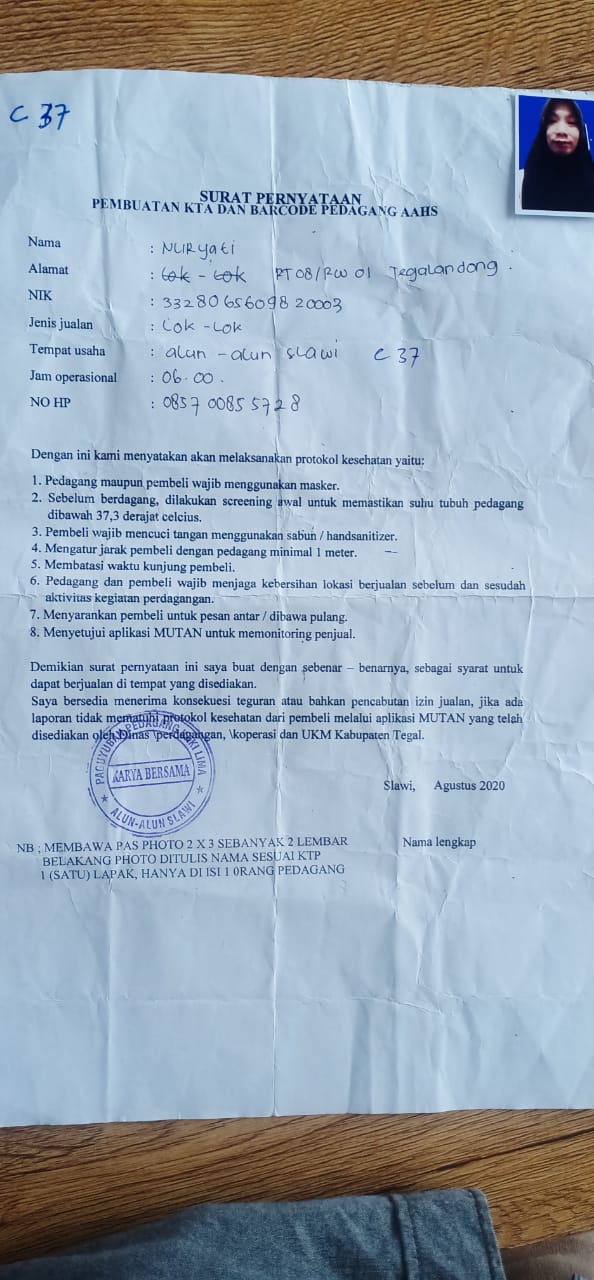 C 37
SURAT PERNYATAAN
PEMBUATAN KTA DAN BARCODE PEDAGANG AAHS
Nama : NURyati
Alamat : Lok - Lok RT 08/RW 01 Tegalandong.
NIK : 3328065609820003
Jenis jualan : Lok - Lok
Tempat usaha : alun - alun slawi C 37
Jam operasional : 06.00.
NO HP : 085700855728
Dengan ini kami menyatakan akan melaksanakan protokol kesehatan yaitu:
1. Pedagang maupun pembeli wajib menggunakan masker.
2. Sebelum berdagang, dilakukan screening awal untuk memastikan suhu tubuh pedagang
dibawah 37,3 derajat celcius.
3. Pembeli wajib mencuci tangan menggunakan sabun / handsanitizer.
4. Mengatur jarak pembeli dengan pedagang minimal 1 meter.
5. Membatasi waktu kunjung pembeli.
6. Pedagang dan pembeli wajib menjaga kebersihan lokasi berjualan sebelum dan sesudah
aktivitas kegiatan perdagangan.
7. Menyarankan pembeli untuk pesan antar / dibawa pulang.
8. Menyetujui aplikasi MUTAN untuk memonitoring penjual.
Demikian surat pernyataan ini saya buat dengan sebenar – benarnya, sebagai syarat untuk
dapat berjualan di tempat yang disediakan.
Saya bersedia menerima konsekuesi teguran atau bahkan pencabutan izin jualan, jika ada
laporan tidak mematuhi protokol kesehatan dari pembeli melalui aplikasi MUTAN yang telah
disediakan oleh Dinas \perdagangan, \koperasi dan UKM Kabupaten Tegal.
PAGUYUBAN PEDAGANG KAKI LIMA
KARYA BERSAMA
★ ALUN-ALUN SLAWI ★
Slawi, Agustus 2020
Nama lengkap
NB ; MEMBAWA PAS PHOTO 2 X 3 SEBANYAK 2 LEMBAR
BELAKANG PHOTO DITULIS NAMA SESUAI KTP
1 (SATU) LAPAK, HANYA DI ISI 1 0RANG PEDAGANG